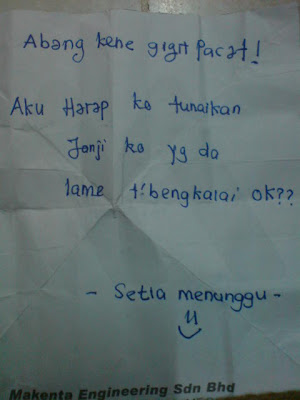 Abang kene gigit Pacat!
Aku Harap ko tunaikan
Janji ko yg da
lame t'bengkalai ok??
- Setia menunggu -
Makenta Engineering Sdn Bhd